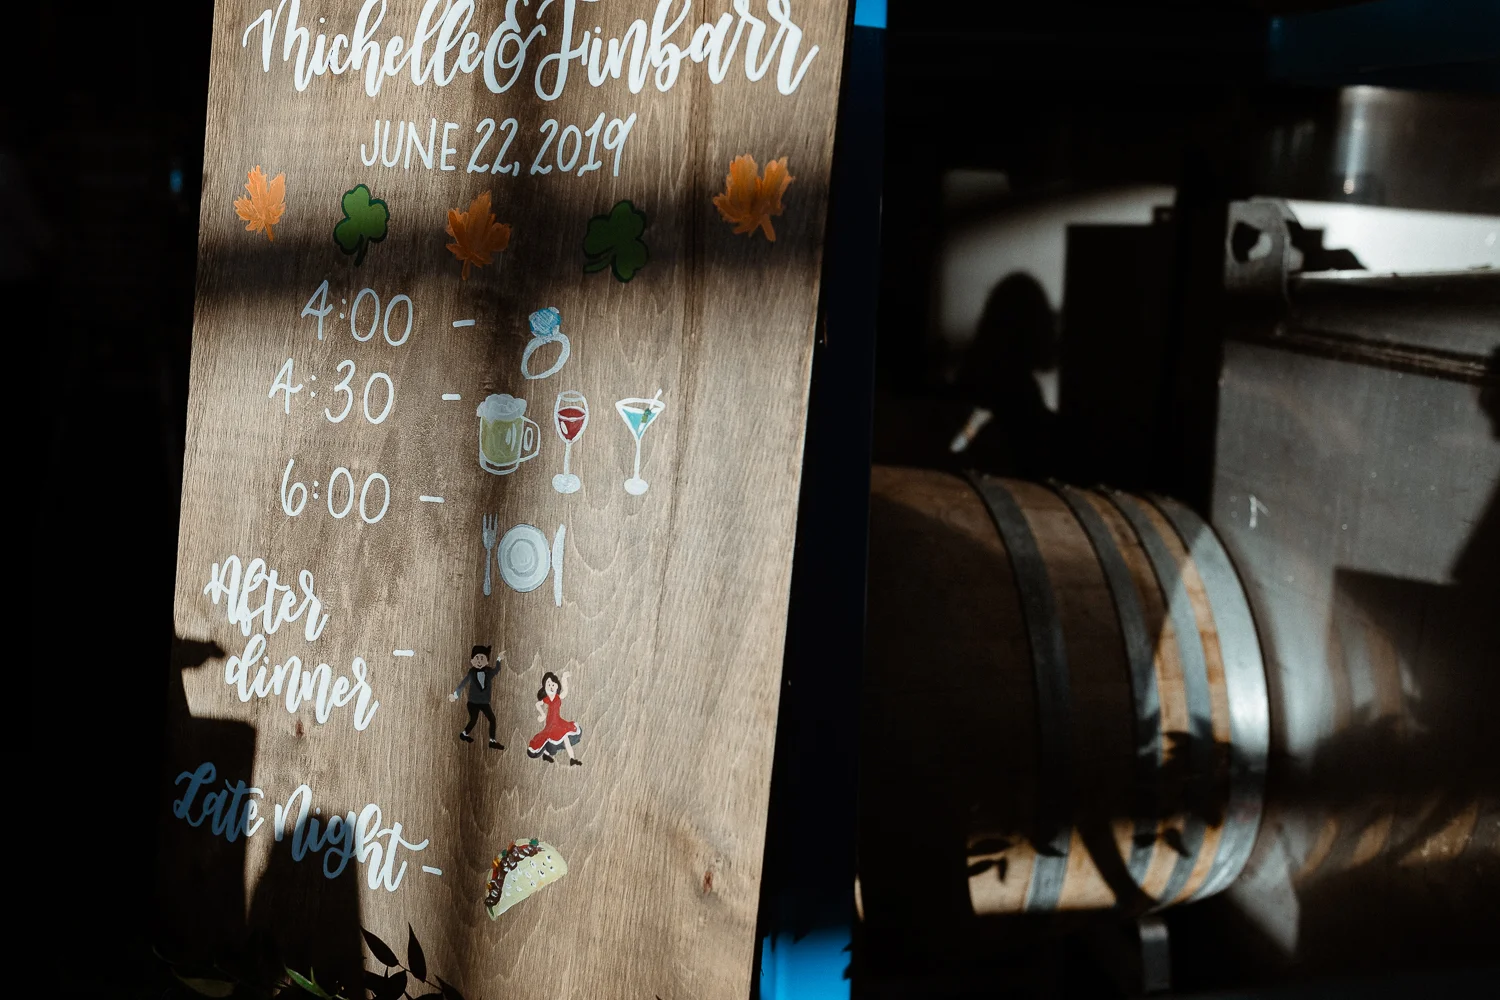 Michelle & Finbarr
JUNE 22, 2019
4:00 -
4:30 -
6:00 -
After
dinner -
Late Night -